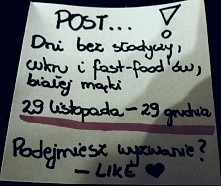 POST... !
Dni bez słodyczy,
cukru i fast-food'ów,
białej mąki
29 listopada - 29 grudnia
Podejmiesz wyzwanie?
- LIKE ♥